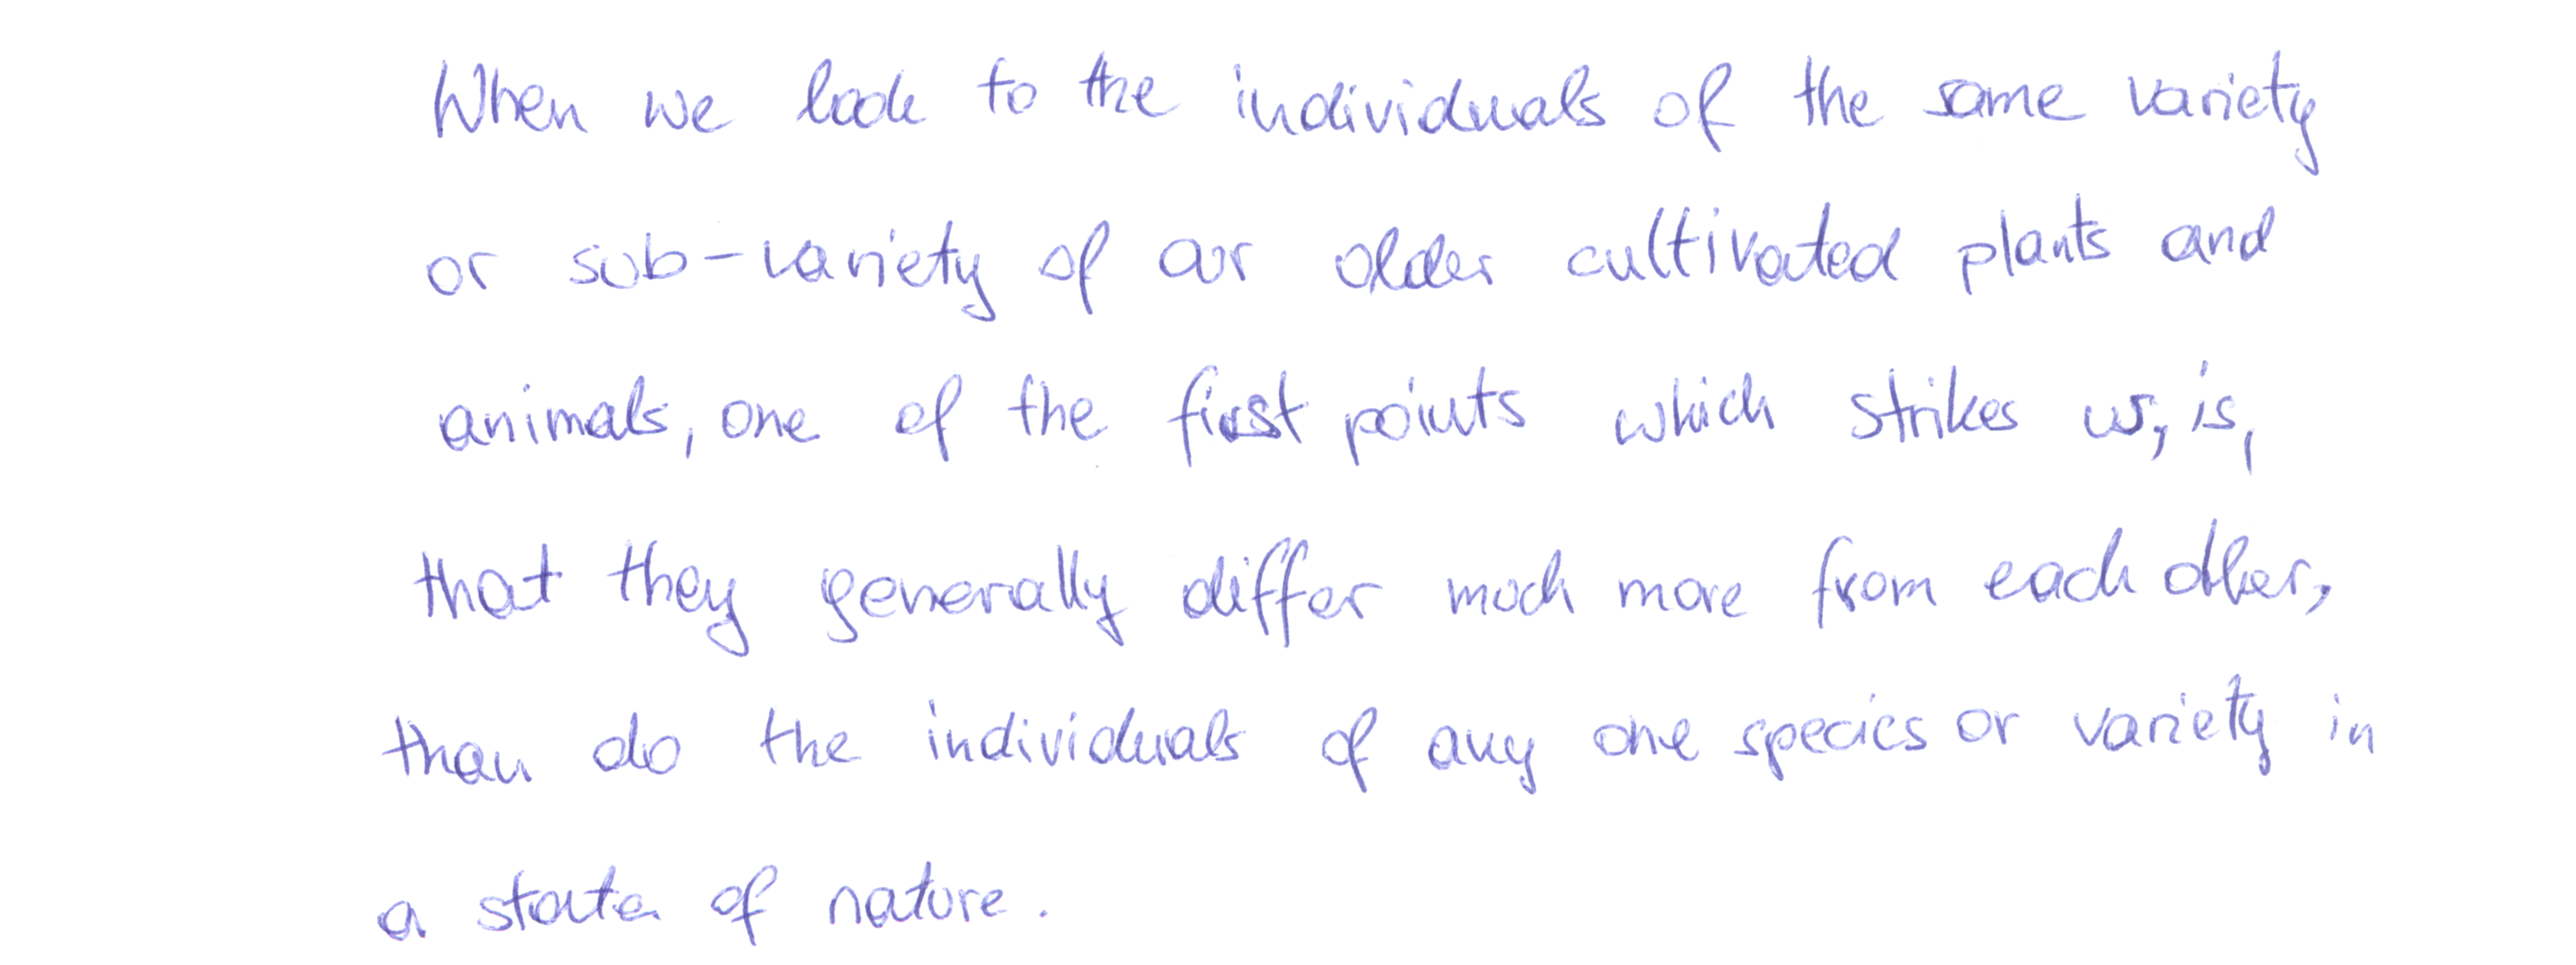 When we look to the individuals of the same variety
or sub-variety of our older cultivated plants and
animals, one of the first points which strikes us, is,
that they generally differ much more from each other,
than do the individuals of any one species or variety in
a state of nature.